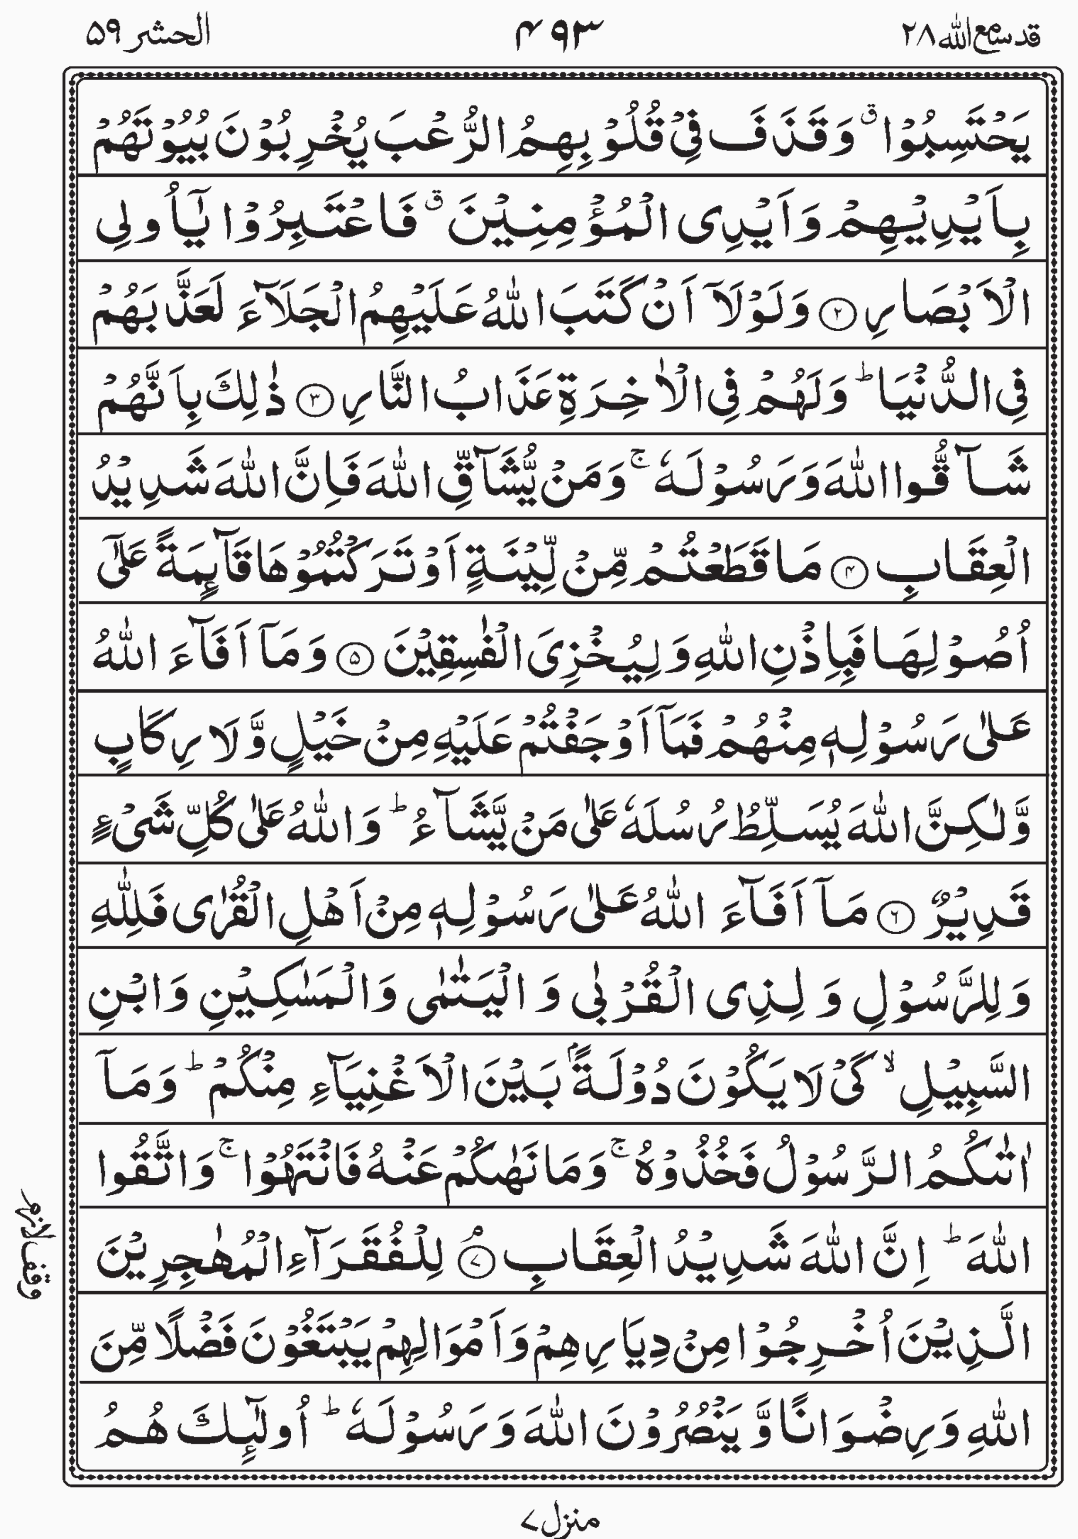 قد سمع الله ۲۸ ۴۹۳ الحشر ۵۹
يَحْتَسِبُوْا ۗ وَقَذَفَ فِيْ قُلُوْبِهِمُ الرُّعْبَ يُخْرِبُوْنَ بُيُوْتَهُمْ
بِاَيْدِيْهِمْ وَاَيْدِى الْمُؤْمِنِيْنَ ۗ فَاعْتَبِرُوْا يٰٓاُولِى
الْاَبْصَارِ ۝۲ وَلَوْلَآ اَنْ كَتَبَ اللّٰهُ عَلَيْهِمُ الْجَلَآءَ لَعَذَّبَهُمْ
فِى الدُّنْيَا ؕ وَلَهُمْ فِى الْاٰخِرَةِ عَذَابُ النَّارِ ۝۳ ذٰلِكَ بِاَنَّهُمْ
شَآقُّوا اللّٰهَ وَرَسُوْلَهٗ ۚ وَمَنْ يُّشَآقِّ اللّٰهَ فَاِنَّ اللّٰهَ شَدِيْدُ
الْعِقَابِ ۝۴ مَا قَطَعْتُمْ مِّنْ لِّيْنَةٍ اَوْ تَرَكْتُمُوْهَا قَآئِمَةً عَلٰٓى
اُصُوْلِهَا فَبِاِذْنِ اللّٰهِ وَلِيُخْزِىَ الْفٰسِقِيْنَ ۝۵ وَمَآ اَفَآءَ اللّٰهُ
عَلٰى رَسُوْلِهٖ مِنْهُمْ فَمَآ اَوْجَفْتُمْ عَلَيْهِ مِنْ خَيْلٍ وَّلَا رِكَابٍ
وَّلٰكِنَّ اللّٰهَ يُسَلِّطُ رُسُلَهٗ عَلٰى مَنْ يَّشَآءُ ؕ وَاللّٰهُ عَلٰى كُلِّ شَىْءٍ
قَدِيْرٌ ۝۶ مَآ اَفَآءَ اللّٰهُ عَلٰى رَسُوْلِهٖ مِنْ اَهْلِ الْقُرٰى فَلِلّٰهِ
وَلِلرَّسُوْلِ وَلِذِى الْقُرْبٰى وَالْيَتٰمٰى وَالْمَسٰكِيْنِ وَابْنِ
السَّبِيْلِ ۙ كَىْ لَا يَكُوْنَ دُوْلَةًۢ بَيْنَ الْاَغْنِيَآءِ مِنْكُمْ ؕ وَمَآ
اٰتٰىكُمُ الرَّسُوْلُ فَخُذُوْهُ ۚ وَمَا نَهٰىكُمْ عَنْهُ فَانْتَهُوْا ۚ وَاتَّقُوا
اللّٰهَ ؕ اِنَّ اللّٰهَ شَدِيْدُ الْعِقَابِ ۝۷ۘ لِلْفُقَرَآءِ الْمُهٰجِرِيْنَ
وقف لازم
الَّذِيْنَ اُخْرِجُوْا مِنْ دِيَارِهِمْ وَاَمْوَالِهِمْ يَبْتَغُوْنَ فَضْلًا مِّنَ
اللّٰهِ وَرِضْوَانًا وَّيَنْصُرُوْنَ اللّٰهَ وَرَسُوْلَهٗ ؕ اُولٰٓئِكَ هُمُ
منزل ۷